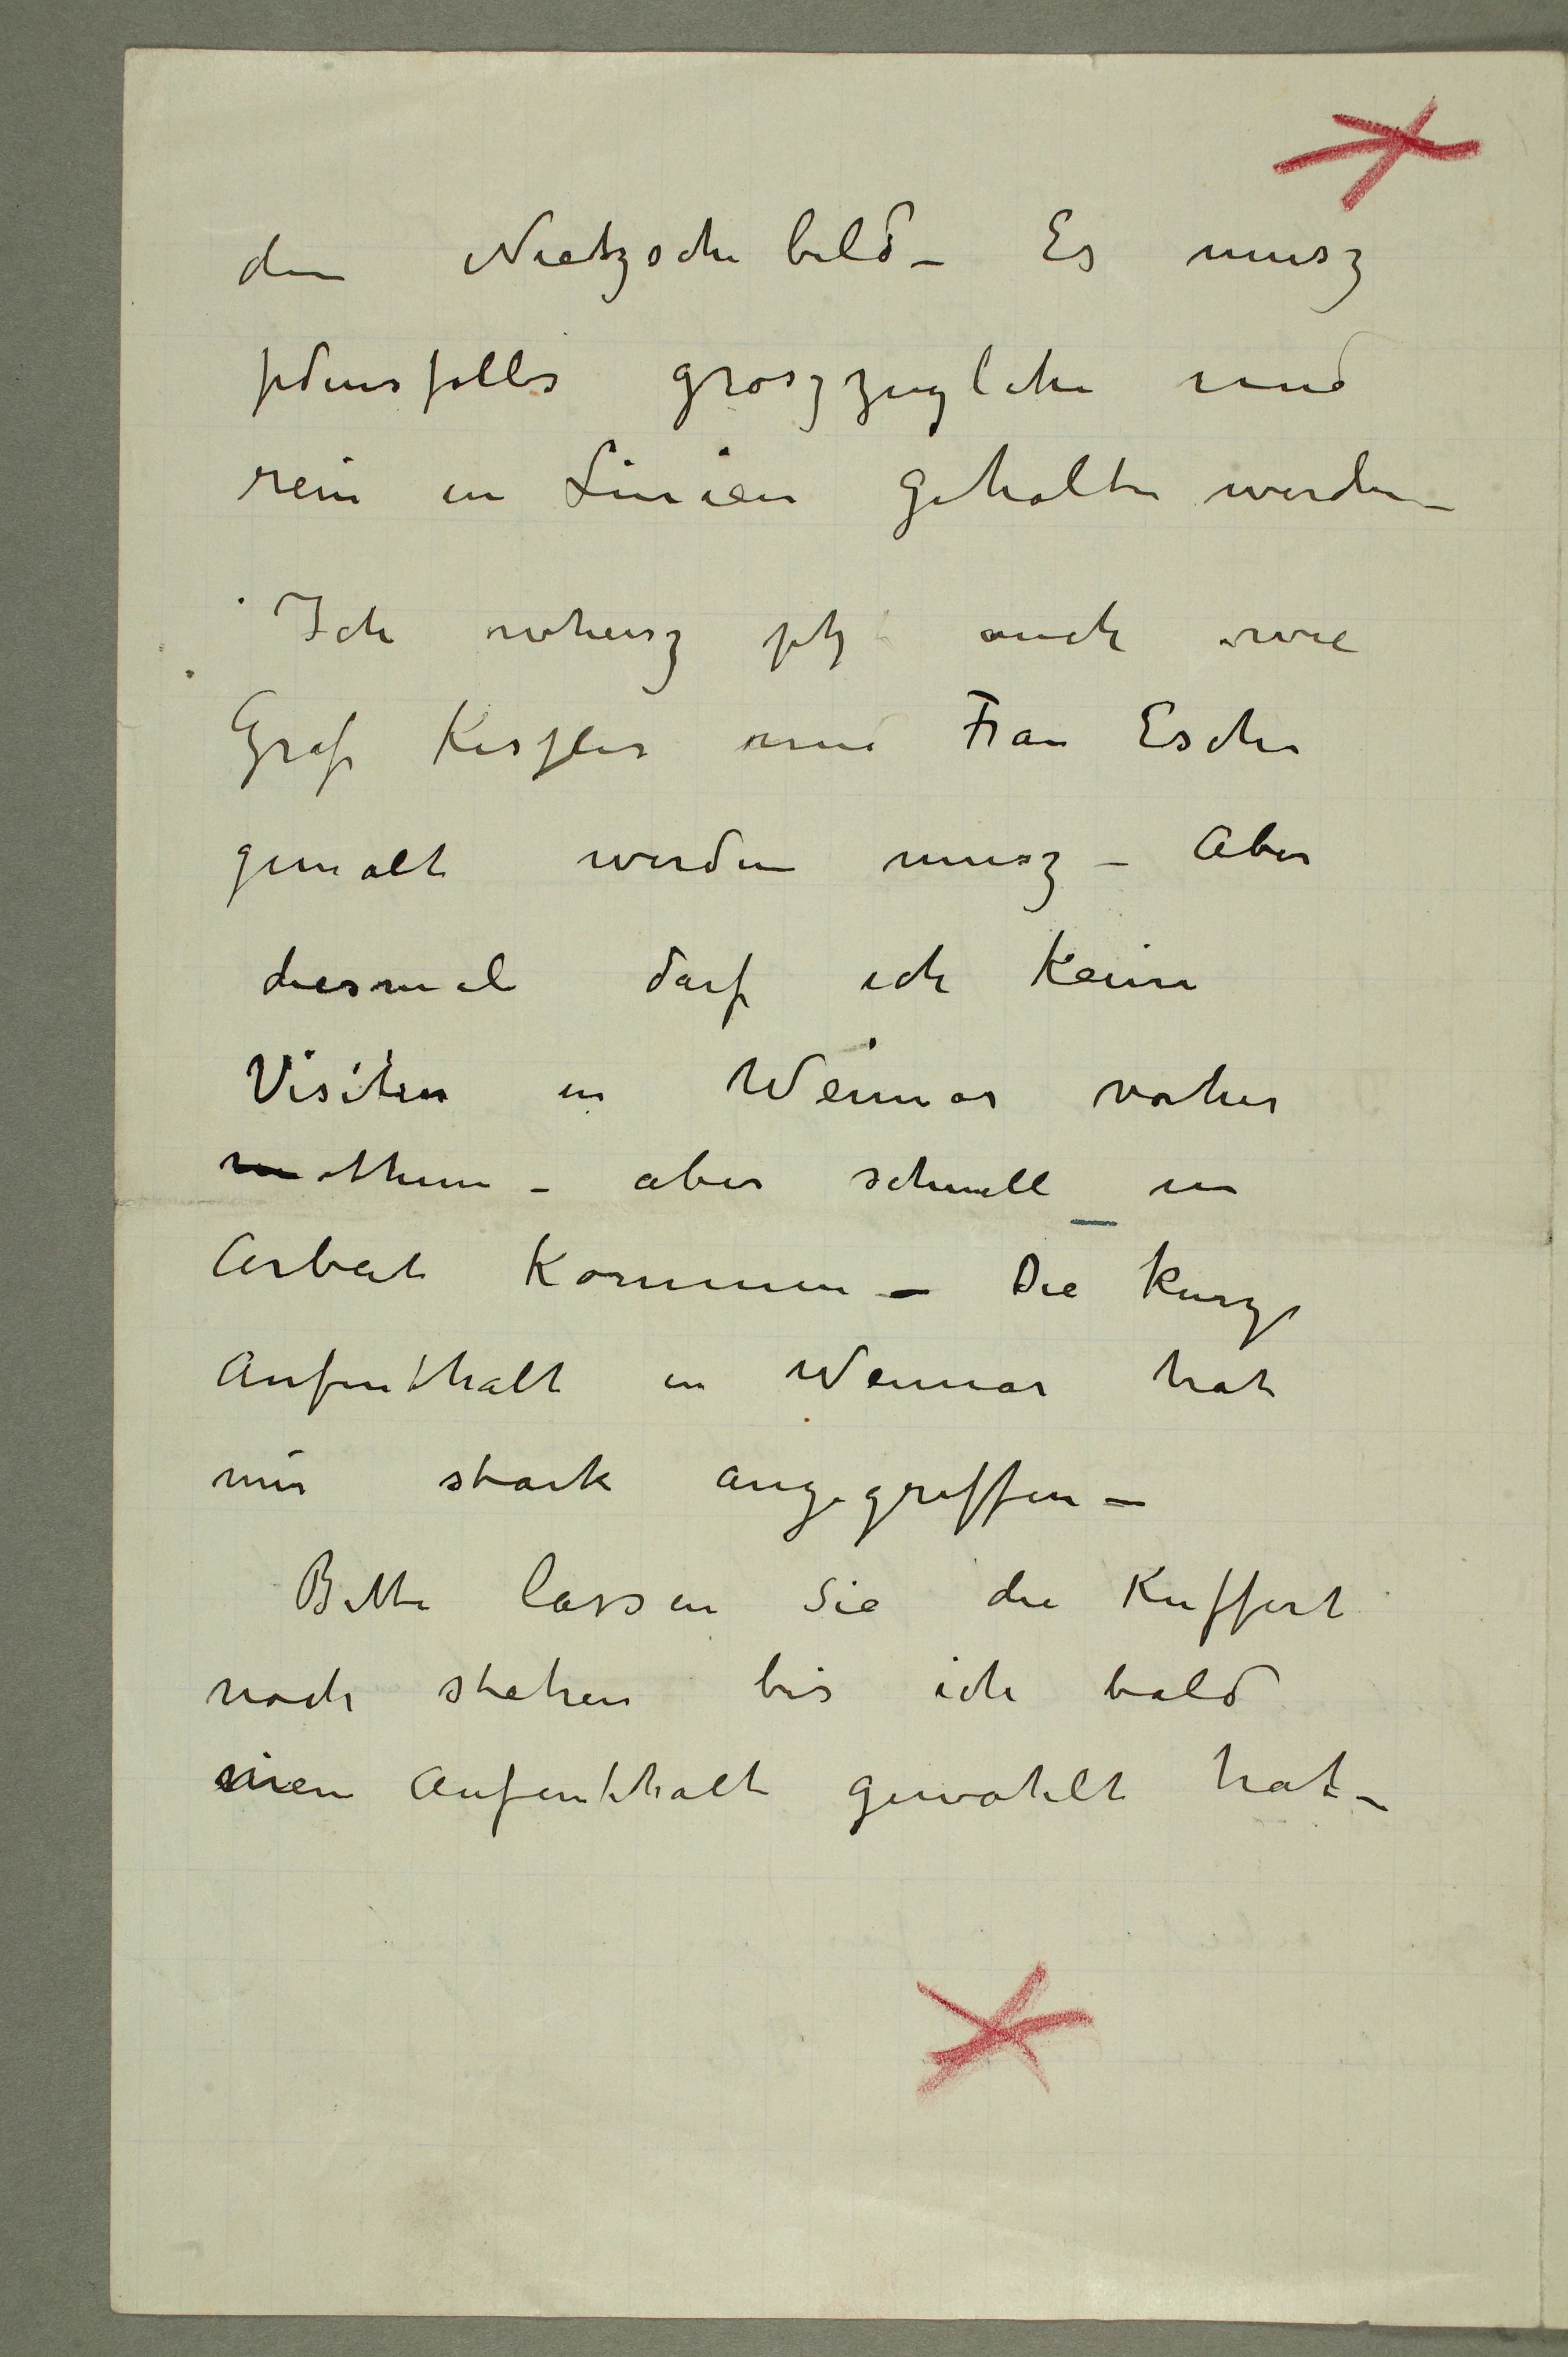 den Nietzsche bild – Es musz
jedensfalls groszzügliche und
rein in Linien gehalten werden –
Ich wheisz jetz auch wie
Graf Keszler und Frau Esche
gemalt werden musz – Aber
diesmal darf ich keine
Visiten in Weimar vorher
thun – aber schnell in
Arbeit kommen – Die kurze
Aufenthalt in Weimar hat
mir stark angegriffen –
Bitte lassen Sie die Kuffert
noch stehen bis ich bald
mein Aufenthalt gewählt hat –